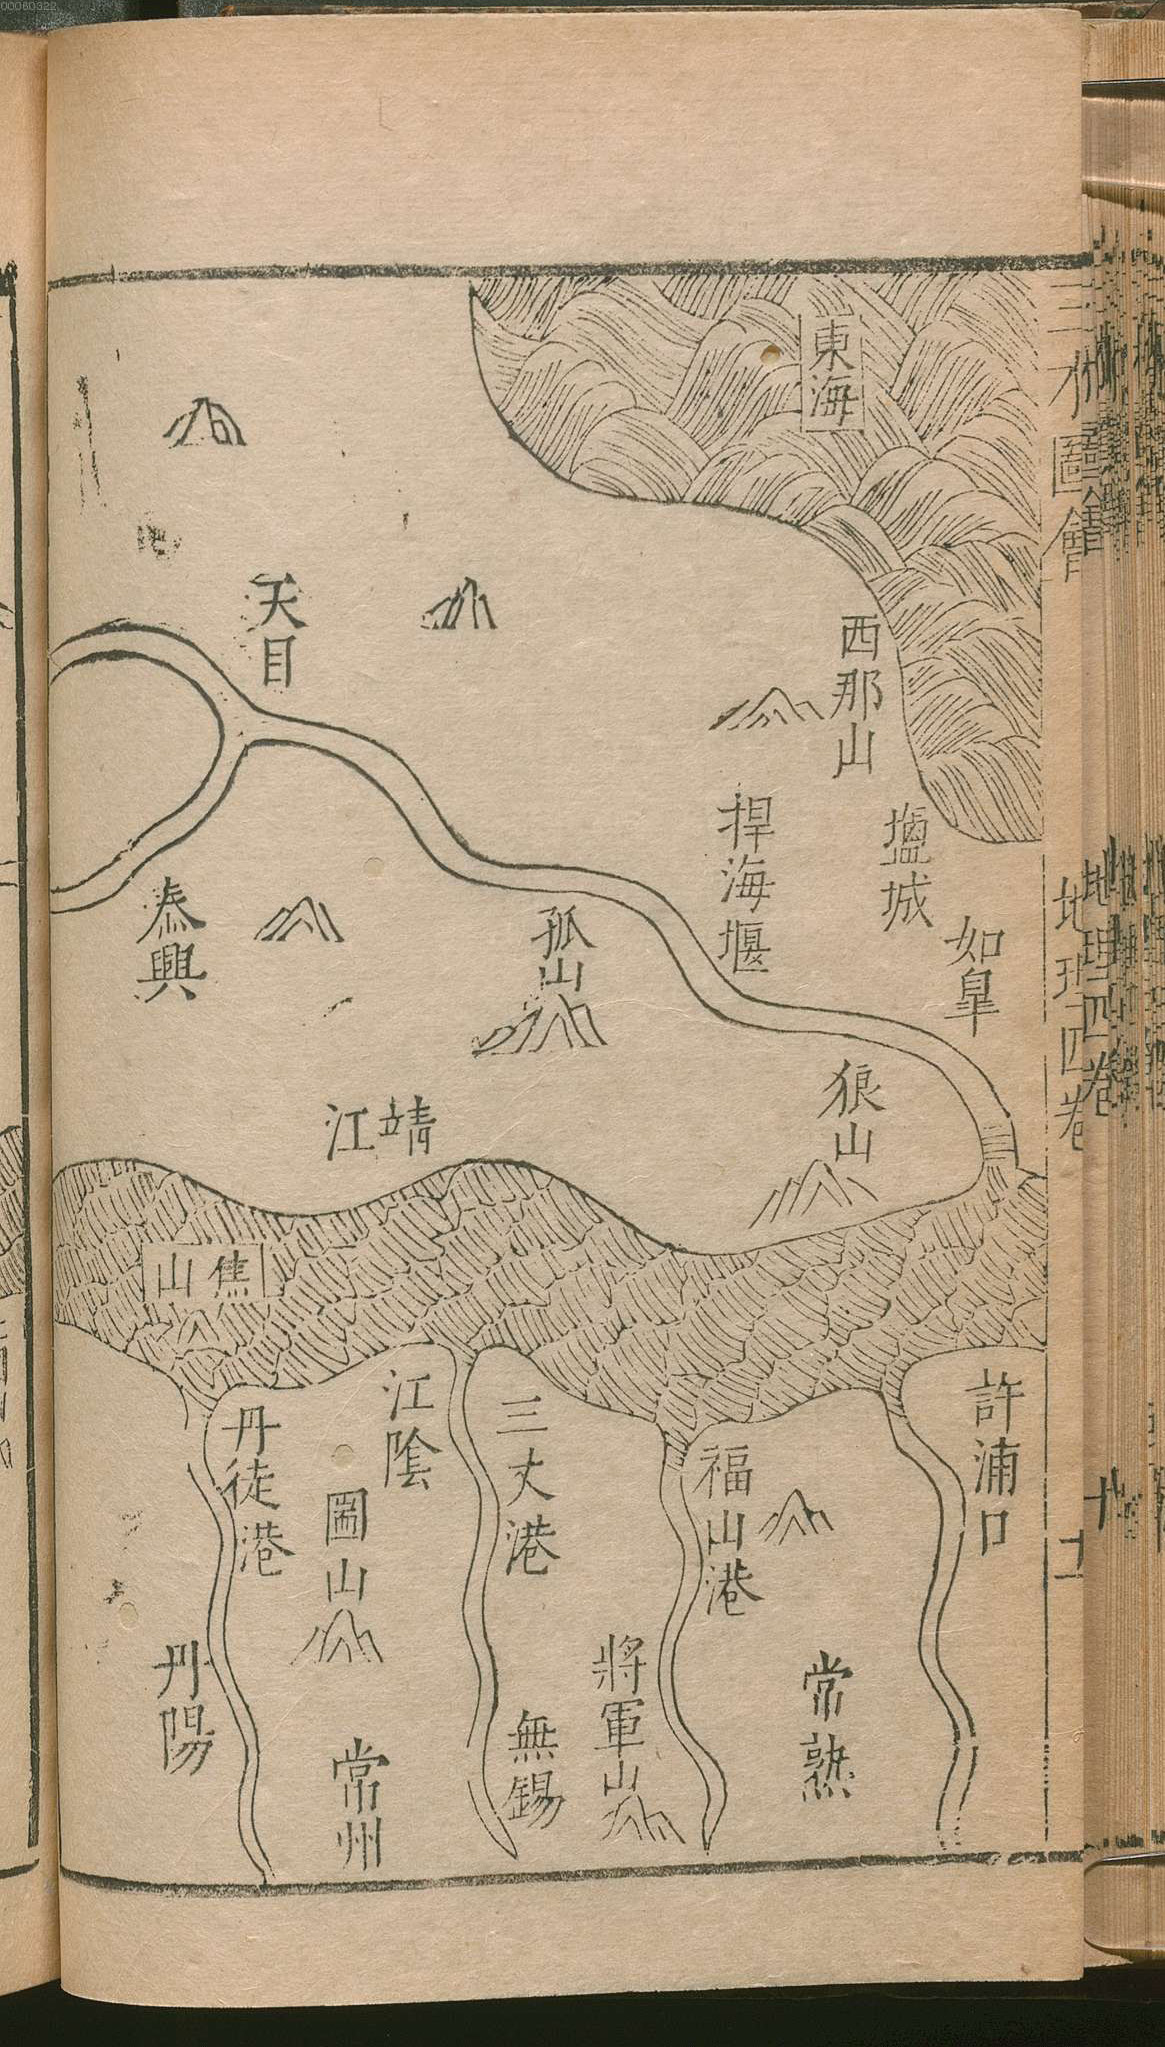 00060322
三才圖會
地理四卷
東海
西那山
塩城
如臯
捍海堰
狼山
孤山
天目
泰興
靖江
焦山
許浦口
福山港
常熟
將軍山
三丈港
無錫
江陰
圌山
常州
丹徒港
丹陽